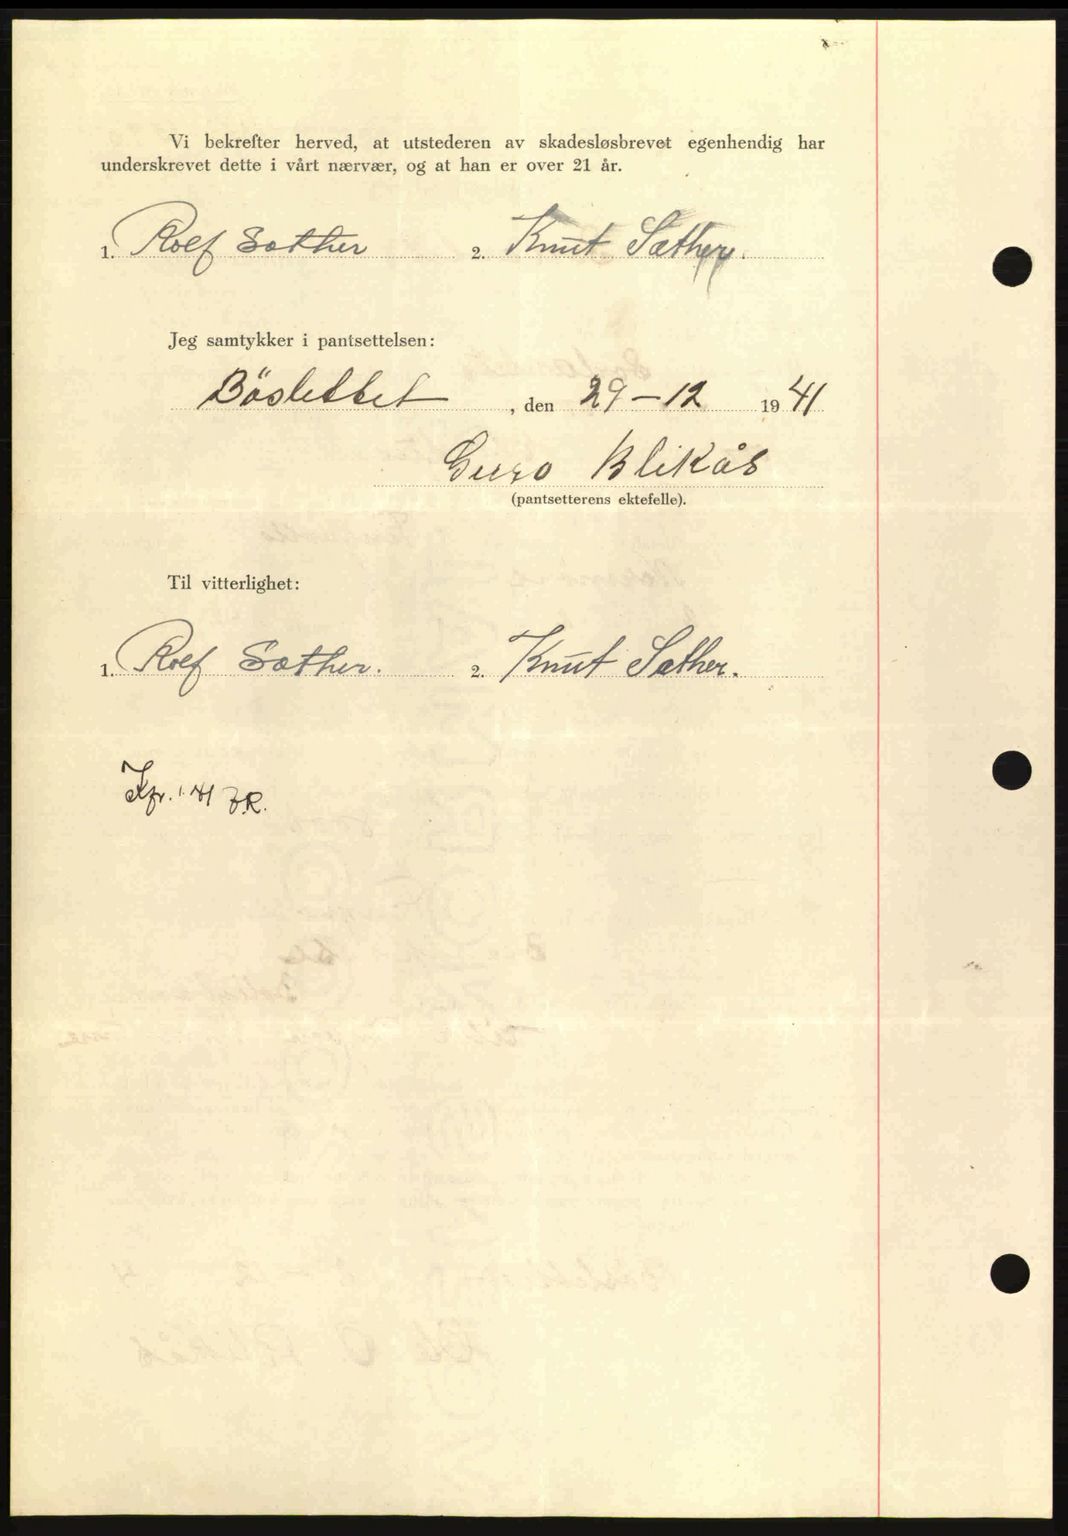 Vi bekrefter herved, at utstederen av skadesløsbrevet egenhendig har
underskrevet dette i vårt nærvær, og at han er over 21 år.
1. Rolf Sæther 2. Knut Sæther.
Jeg samtykker i pantsettelsen:
Böslettet, den 29-12 1941
Guro Blikås
(pantsetterens ektefelle).
Til vitterlighet:
1. Rolf Sæther. 2. Knut Sæther.
Kfr.